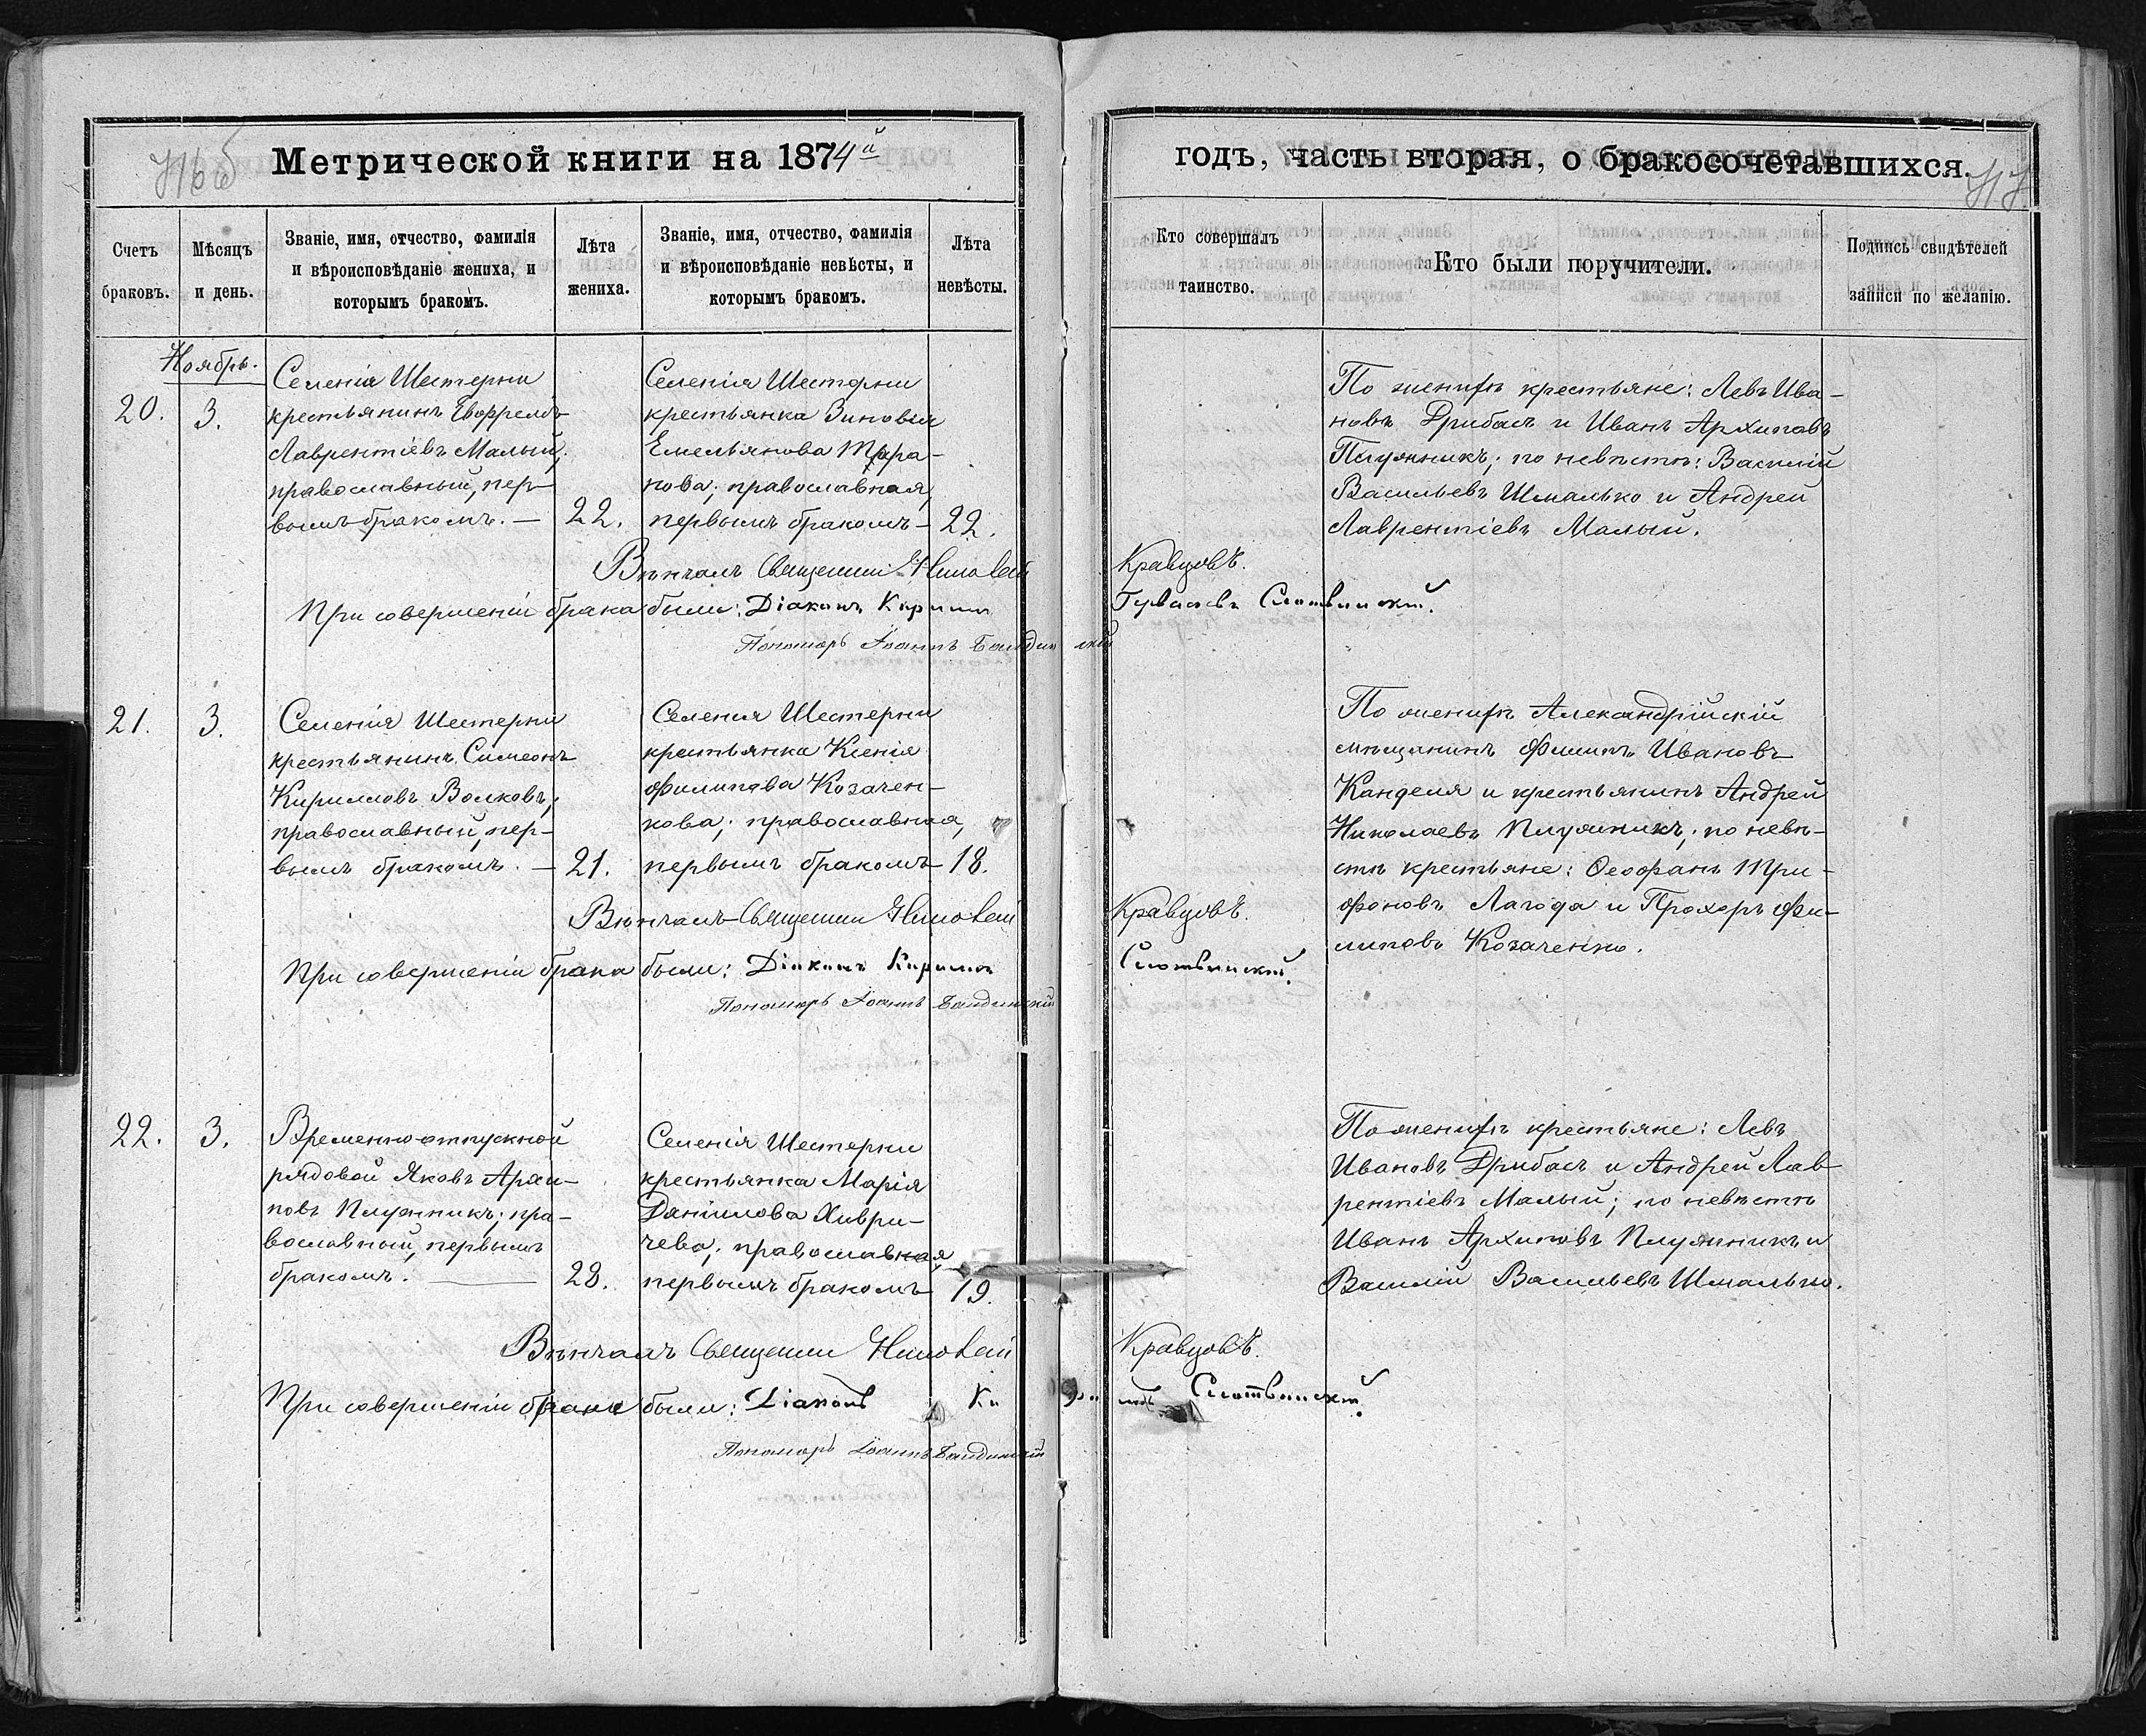 Метрической книги на 1874й
годъ, часть вторая, о бракосочетавшихся.
Счетъ браковъ.
Мѣсяцъ и день.
Званіе, имя, отчество, фамилія
и вѣроисповѣданіе жениха, и
которымъ бракомъ.
Лѣта жениха.
Званіе, имя, отчество, фамилія
и вѣроисповѣданіе невѣсты, и
которымъ бракомъ.
Лѣта невѣсты.
Кто совершалъ таинство.
Кто были поручители.
Подпись свидѣтелей записи по желанію.
Ноябрь.
20.
3.
Селенія Шестерни
крестьянинъ
Лаврентіевъ Малый;
православный, пер-
вымъ бракомъ. —
22.
Селенія Шестерни
крестьянка Зиновія
Емельянова
нова; православная,
первымъ бракомъ —
22.
По женихѣ крестьяне: Левъ Ива-
новъ Дрибасъ и Иванъ Архиповъ
Плужникъ; по невѣстѣ: Василій
Васильевъ Шмалько и Андрей
Лаврентіевъ Малый.
Вѣнчалъ Священник Николай Кравцовъ.
При совершеніи брака были: Діаконъ Слотвинскій.
Пономарь Іоаннъ
21.
3.
Селенія Шестерни
крестьянинъ Симеонъ
Кирилловъ Волковъ;
православный, пер-
вымъ бракомъ. —
21.
Селенія Шестерни
крестьянка Ксенія
Филипова Козачен-
кова; православная,
первымъ бракомъ —
18.
По женихѣ Александрійскій
мѣщанинъ Филипъ Ивановъ
Канделя и крестьянинъ Андрей
Николаевъ Плужникъ; по невѣ-
стѣ крестьяне: Ѳеофанъ Три-
фоновъ Лагода и Прохоръ Фи-
липовъ Козаченко.
Вѣнчалъ Священник Николай Кравцовъ.
При совершеніи брака были: Діаконъ Кириллъ Слотвинскій.
Пономарь Іоаннъ
22.
3.
Временно-отпускной
рядовой Яковъ Архи-
повъ Плужникъ; пра-
вославный, первымъ
бракомъ. —
28.
Селенія Шестерни
крестьянка Марія
Даніилова Хиври-
чева; православная,
первымъ бракомъ
19.
По женихѣ крестьяне: Левъ
Ивановъ Дрибасъ и Андрей Лав-
рентіевъ Малый; по невѣстѣ
Иванъ Архиповъ Плужникъ и
Василій Васильевъ Шмалько.
Вѣнчалъ Священник Николай Кравцовъ.
При совершеніи брака были: Діаконъ Слотвинскій.
Пономарь Іоаннъ